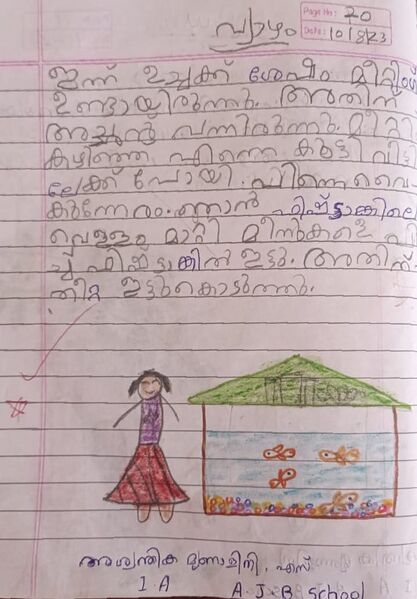 Page No: 20
Date: 10/8/23
വ്യാഴം
ഇന്ന് ഉച്ചക്ക് ശേഷം മീറ്റിംഗ്
ഉണ്ടായിരുന്നു. അതിന്
അച്ഛൻ വന്നിരുന്നു. മീറ്റി
കഴിഞ്ഞ് എന്നെ കൂട്ടി വീട്ടി
ലേക്ക് പോയി. പിന്നെ വൈ
കുന്നേരം ഞാൻ ഫിഷ്ടാങ്കിലെ
വെള്ളം മാറ്റി മീനുകളെ പി
ഫിഷ്ടാങ്കിൽ ഇട്ടു. അതിന്
തീറ്റ ഇട്ടുകൊടുത്തു.
അശ്വന്തിക മൃണാളിനി. എസ്
I A A. J. B School